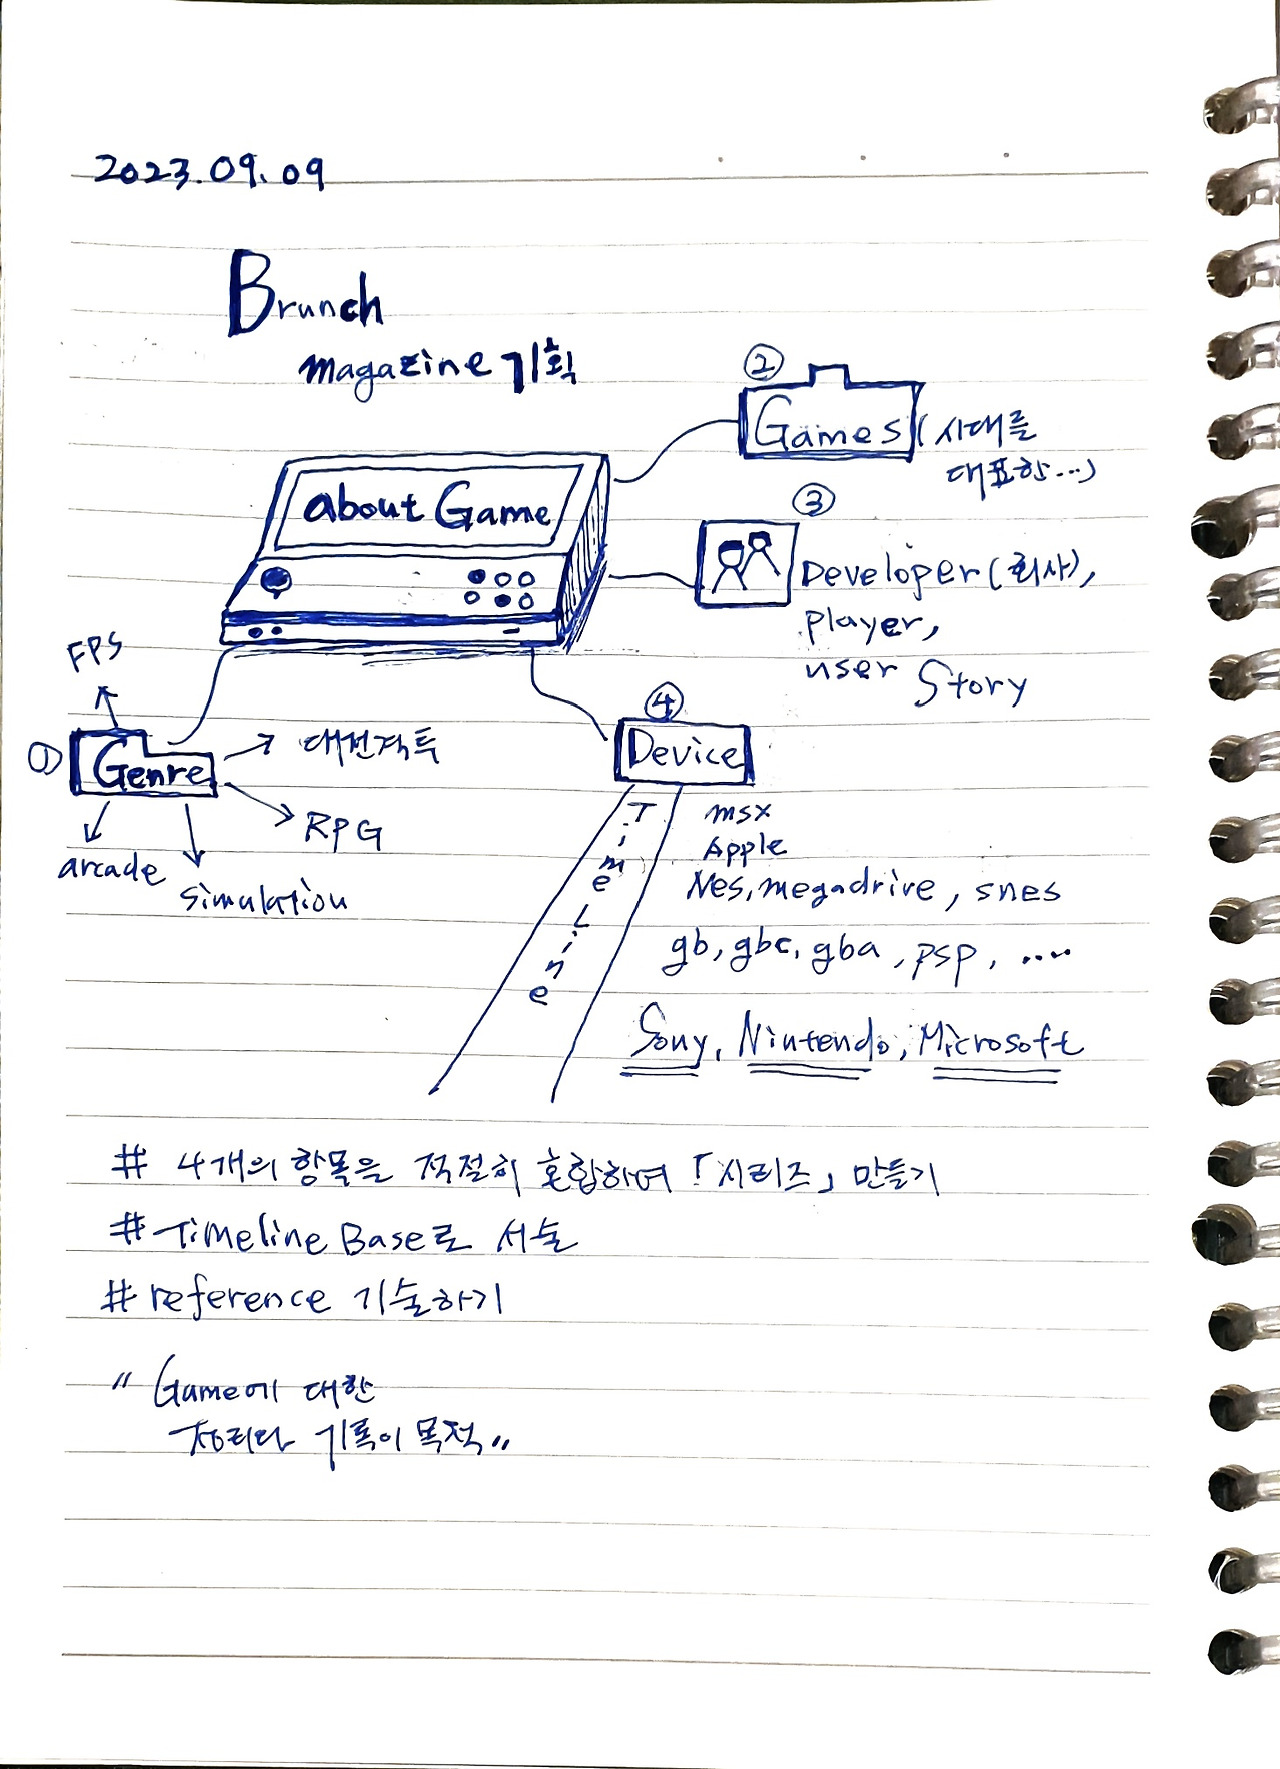 2023.09.09
Brunch
magazine 기획
about Game
②
Games (시대를
대표한...)
③
Developer(회사),
player,
user Story
FPS
①
Genre
대전격투
RPG
arcade
simulation
④
Device
Time Line
msx
Apple
Nes, megadrive, snes
gb, gbc, gba, psp, ....
Sony, Nintendo, Microsoft
# 4개의 항목을 적절히 혼합하여 「시리즈」 만들기
# Timeline Base로 서술
# reference 기술하기
" Game에 대한
정리와 기록이 목적"